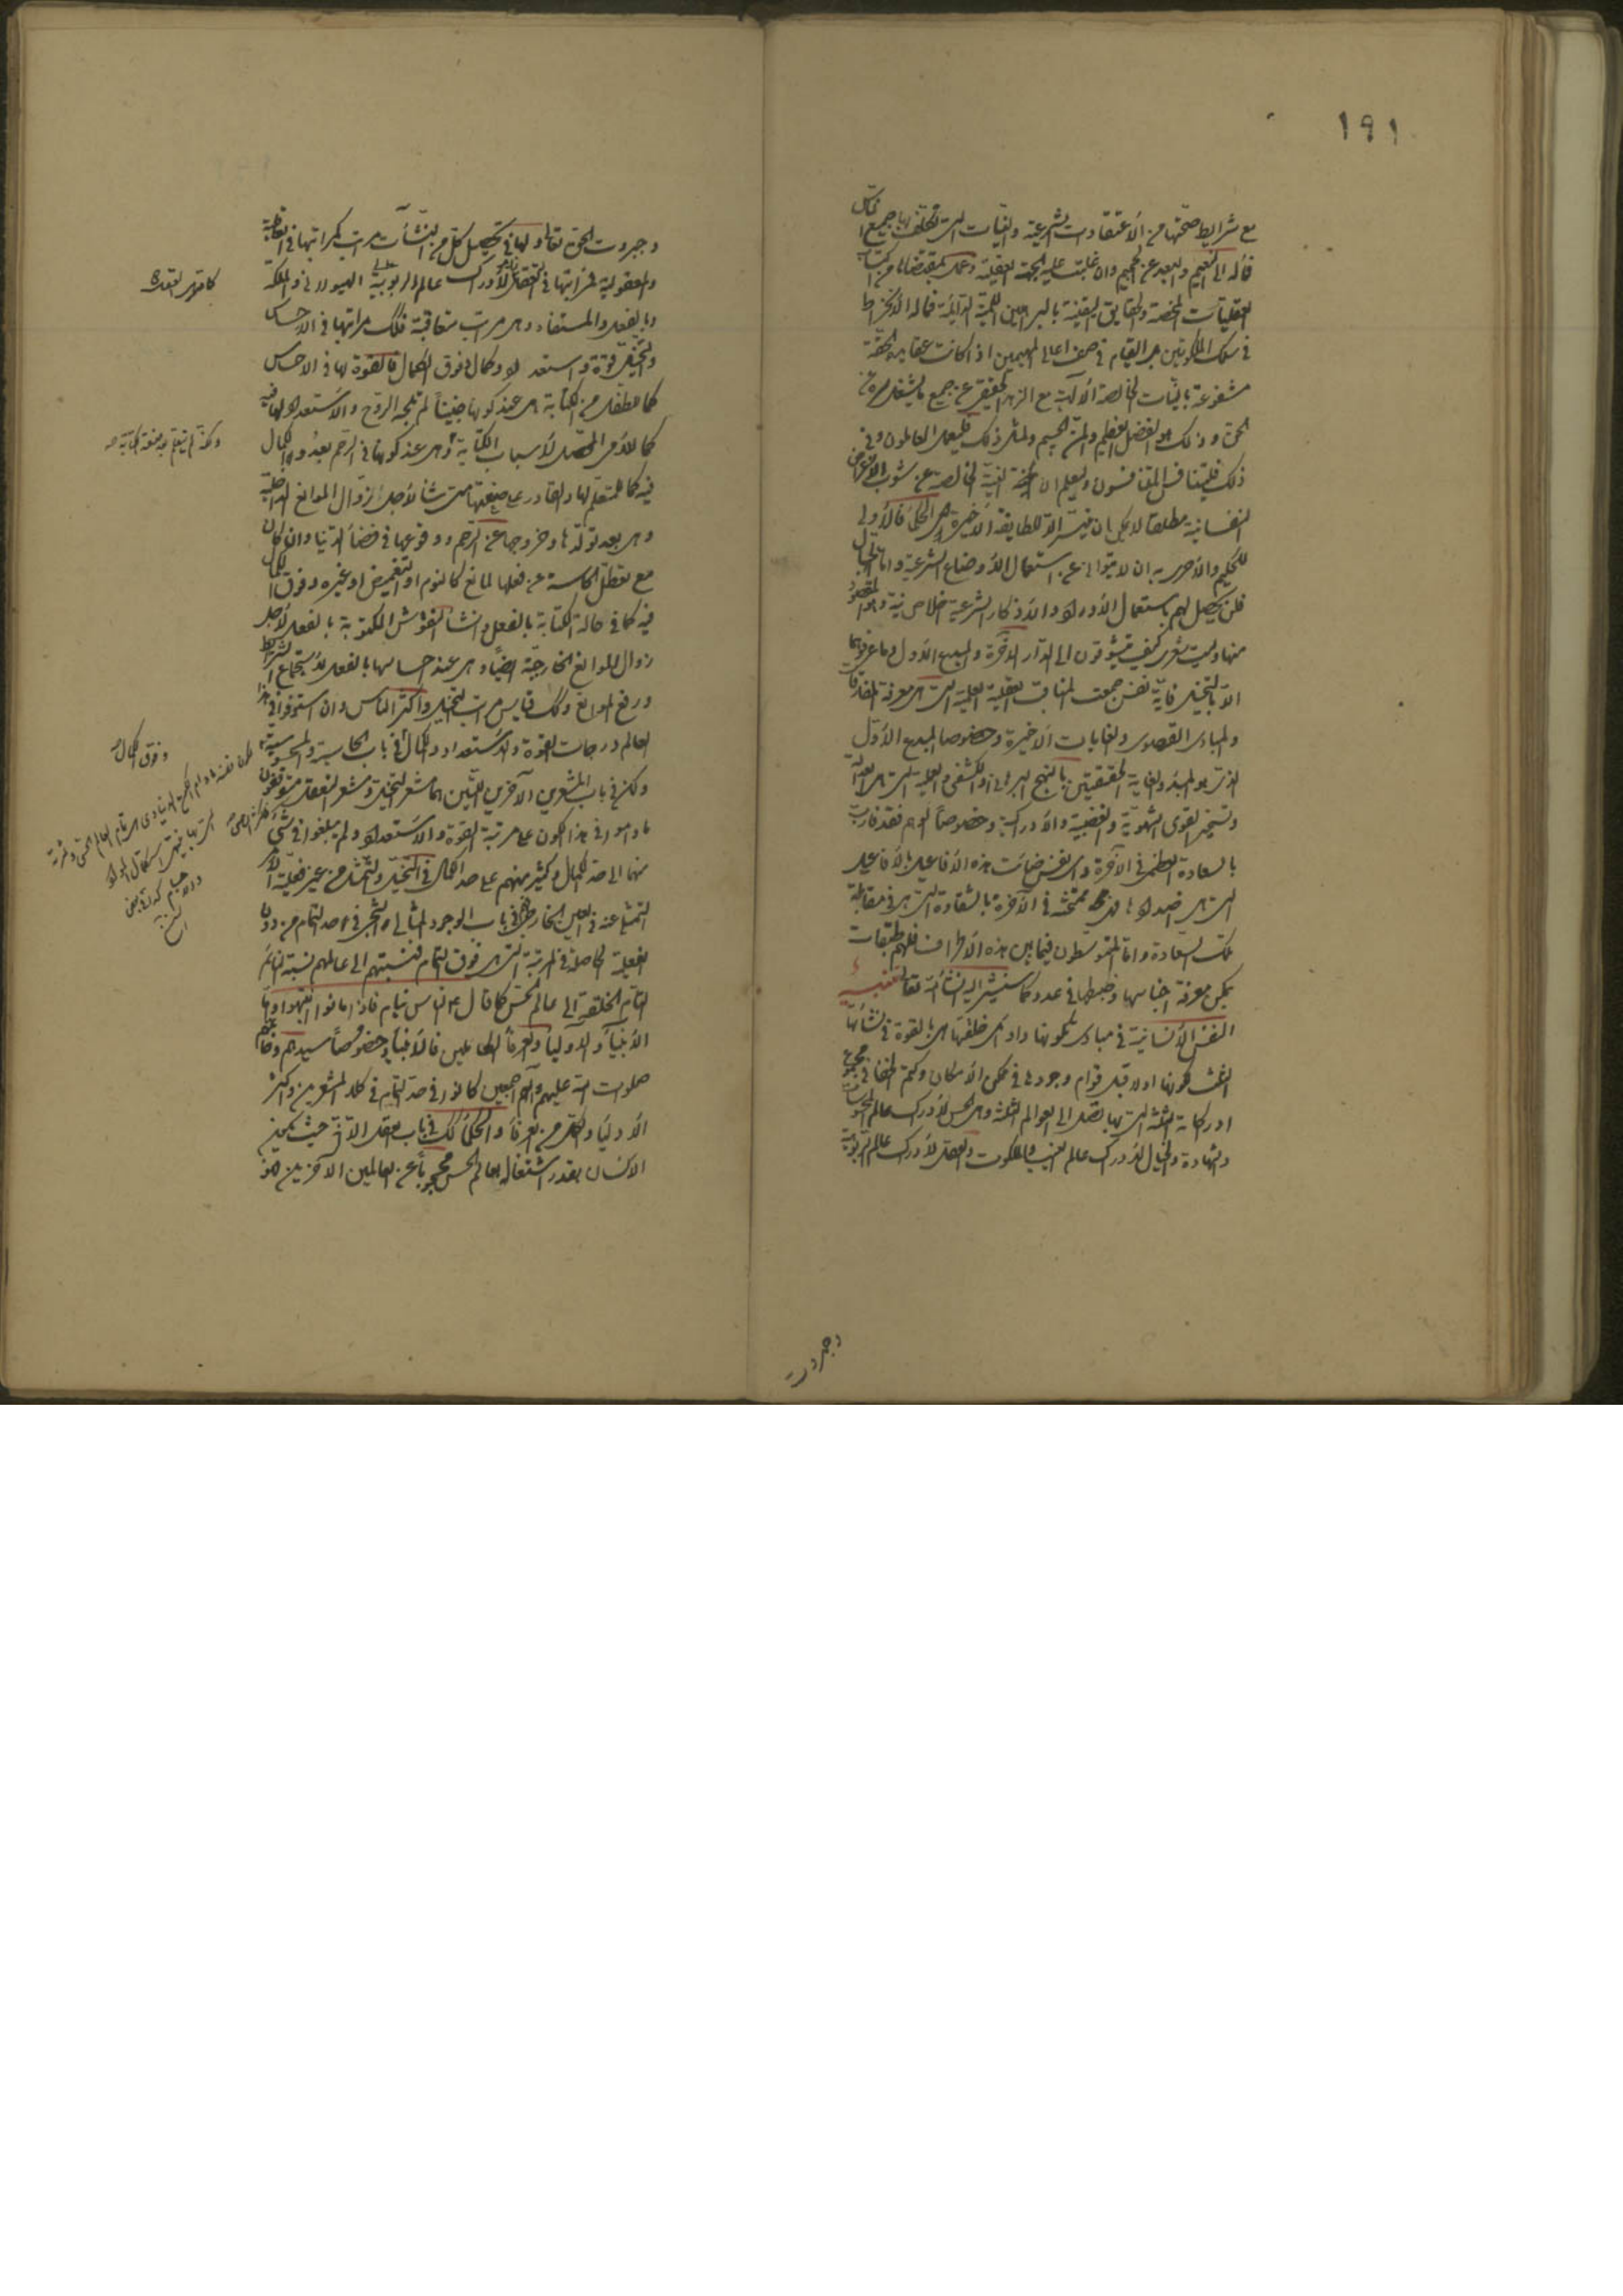 ١٩١
مع شرايط صحتها من الاعتقادات الشرعية والنيات التى تكلف بها جميع الناس
فمآله الى النعيم والبعد عن الجحيم وان غلبت عليه الجهة العقلية وعمل بمقتضاها من اكتساب
العقليات المحضة والحقايق اليقينية بالبراهين اللمية الدائمة فمآله الانخراط
فى سلك الملكوتين بل القيام فى صف اعالى المهيمين اذا كانت عقايده الحقة
مشفوعة بالنيات الخالصة الالهية مع الزهد الحقيقى عن جميع ما يشغل سره عن
الحق وذلك هو الفضل العظيم والمن الجسيم ولمثل ذلك فليعمل العاملون وفى
ذلك فليتنافس المتنافسون وليعلم ان النية الخالصة عن شوب الاغراض
النفسانية مطلقا لا يمكن ان تتيسر الا للطايفة الاخيرة وهم الحكماء فالاولى
للحكيم والاحرى به ان لا يتوانى عن استعمال الاوضاع الشرعية واما الجهال
فلن يحصل لهم باستعمال الاوراد والاذكار الشرعية خلاص نية وهو المقصود
منها وليت شعرى كيف يتشوقون الى الدار الاخرة والمبدع الاول وما عرفوهما
الا بالتخيل فاية نفس جمعت المناقب العقلية العلمية التى هى معرفة المفارقات
والمبادى القصوى والغايات الاخيرة وخصوصا المبدع الاول
الذى هو المبدء والغاية الحقيقيتين بالنهج البرهانى او الكشفى والعملية التى هى العدالة
وتسخير القوى الشهوية والغضبية والادراكية وخصوصا الوهم فقد فازت
بالسعادة العظمى فى الآخرة واى نفس ضاعت هذه الافاعيل بالافاعيل
التى هى اضدادها فهى ممتحنة فى الآخرة بالشقاوة التى هى فى مقابلة
تلك السعادة واما المتوسطون فيما بين هذه الاطراف فلهم طبقات
يمكن معرفة اجناسها وضبطها فى عدد كما سنشير اليه انشاء الله تعالى تنبيه
النفس الانسانية فى مبادى تكونها واوائل خلقتها هى بالقوة فى نشأتها
الثلث لكونها اولا قبل قوام وجودها فى مكمن الامكان وكتم الخفا فى مجموع
ادراكاته الثلثة التى بها تصل الى العوالم الثلثة وهى الحس لادراك عالم المحسوسات
والشهادة والخيال لادراك عالم الغيب والملكوت والعقل لادراك عالم الربوبية
وجبروت
وجبروت الحق تعالى ولها فى تحصيل كل من النشآت مراتب كمراتبها فى العاقلية
والمعقولية فمراتبها فى التعقل لادراك عالم الربوبية الهيولانى والملكة
وبالفعل والمستفاد وهى مراتب متعاقبة فلك مراتبها فى الاحساس
والتخيل قوة واستعداد وكمال وفوق الكمال فالقوة لها فى الاحساس
كما للطفل من الكتابة هى عند كونها جنينا لم تلجه الروح والاستعداد لها فيه
كما للامى المحصل لاسباب الكتابة وهى عند كونها فى الرحم بعد والكمال
فيه كما للمتعلم لها والقادر على صنعتها متى شاء لاجل زوال الموانع الداخلية
وهى بعد تولدها وخروجها عن الرحم ووقوعها فى فضاء الدنيا وان كان
مع تعطل الحاسة عن فعلها لمانع كالنوم او التغميض او غيره وفوق الكمال
فيه كما فى حالة الكتابة بالفعل وانشاء النقوش المكتوبة بالفعل لاجل
زوال الموانع الخارجة ايضا وهى عند احساسها بالفعل لاستجماع الشرايط
ورفع الموانع ولك قياس مراتب التخيل واكثر الناس وان استوفوا فى هذا
العالم درجات القوة والاستعداد والكمال فى باب الحاسية والمحسوسية
ولكن فى باب المشعرين الآخرين اللتين هما مشعر التخيل ومشعر التعقل متوقفون
ما داموا فى هذا الكون على مرتبة القوة والاستعداد ولم يبلغوا فى شىء
منهما الى حد الكمال وكثير منهم على حد الكمال فى التخيل والتمثل من غير فعلية الامر
المتمثل عنه فى العين الخارجى فى باب الوجود المثالى والشجرى فى حد التمام من دون
الفعلية الحاصلة فى المرتبة التى هى فوق التمام فنسبتهم الى عالمهم نسبة النائم
التام الخلقة الى عالم الحس كما قال ع الناس نيام فاذا ماتوا انتبهوا واما
الانبياء والاولياء والعرفاء الكاملين فالانبياء وخصوصا سيدهم وخاتمهم
صلوات الله عليهم وآلهم اجمعين كانوا فى حد التمام فى كلا المشعرين واكثر
الاولياء وكثير من العرفاء والحكماء كك فى باب العقل الا فى حيث يكون
الانسان بقدر اشتغاله بعالم الحس محجوبا عن العالمين الآخرين فهو
وفوق الكمال